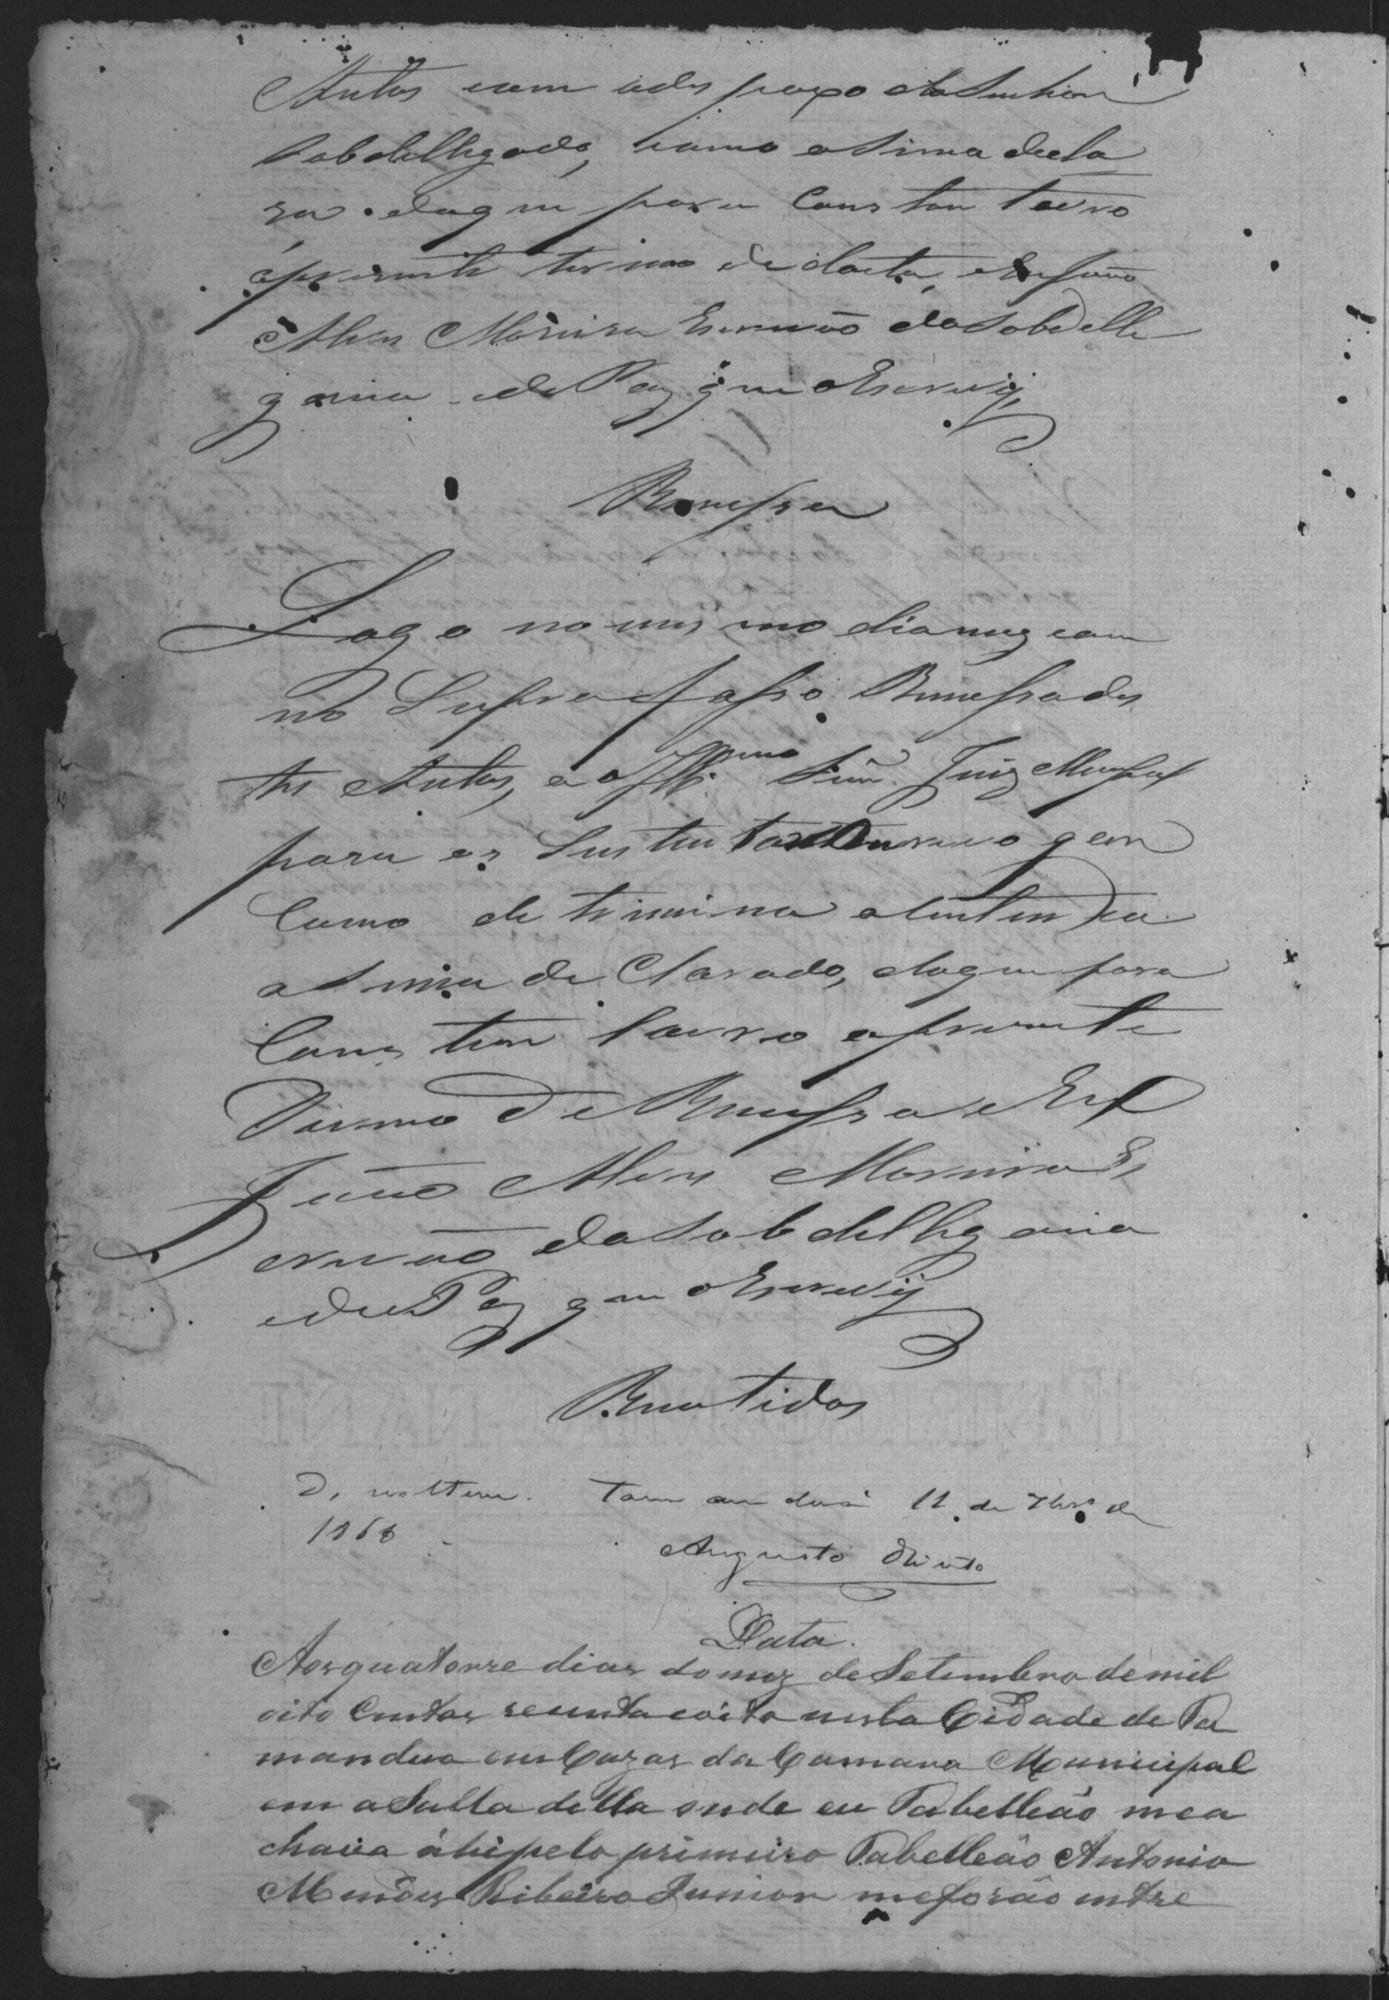 Autos com odespaxo do Senhor
Sobdellhgado, como asima decla
ra. doque para Constar lavro
opresente termo de dacta, eu João
Alves Moreira Escrivão da Sobdelle
gacia de Paz que oEscrevij
Remessa
Logo no mesmo dia mez eann
no Supra fasso Remessa des
tes Autos, ao Illmo Senr. Juiz Mupal
para os Sustentar ou revogar
Como determina aSentenca
asima de Clarado, doque para
Constar lavro opresente
Termo de Remessa e Eu
João Alves Moreira Es
crivão da Sobdellhgacia
de Paz que oEscrevij
Remetidos
D. voltem. Tamanduá 11 de 7bro de
1868
Augusto
Data.
Aos quatorze dias do mez de Setembro de mil
oito Centos secenta eoito nesta Cidade de Ta
mandua em Cazas da Camara Municipal
em a Salla della onde eu Tabelleão me a
chava áhi pelo primeiro Tabelleão Antonio
Mendes Ribeiro Junior me forão entre